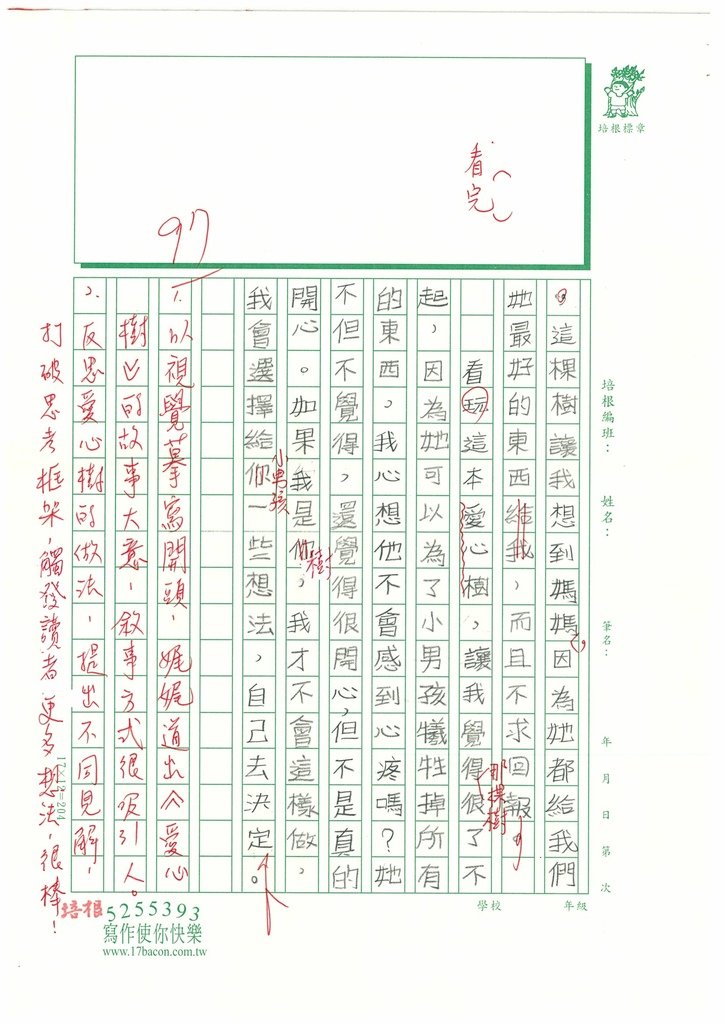 培根標章
看完
97
培根編班：
姓名：
筆名：
年 月 日 第 次
這棵樹讓我想到媽媽，因為她都給我們
她最好的東西給我，而且不求回報
看玩這本愛心樹，讓我覺得很了不
那棵樹
起，因為她可以為了小男孩犧牲掉所有
的東西。我心想他不會感到心疼嗎？她
不但不覺得，還覺得很開心，但不是真的
開心。如果我是你，我才不會這樣做，
樹
我會選擇給你一些想法，自己去決定。
小男孩
1.以視覺摹寫開頭，娓娓道出《愛心
樹》的故事大意，敘事方式很吸引人。
2.反思愛心樹的做法，提出不同見解，
打破思考框架，觸發讀者更多想法，很棒！
17×12=204
學校 年級
培根 5255393
寫作使你快樂
www.17bacon.com.tw